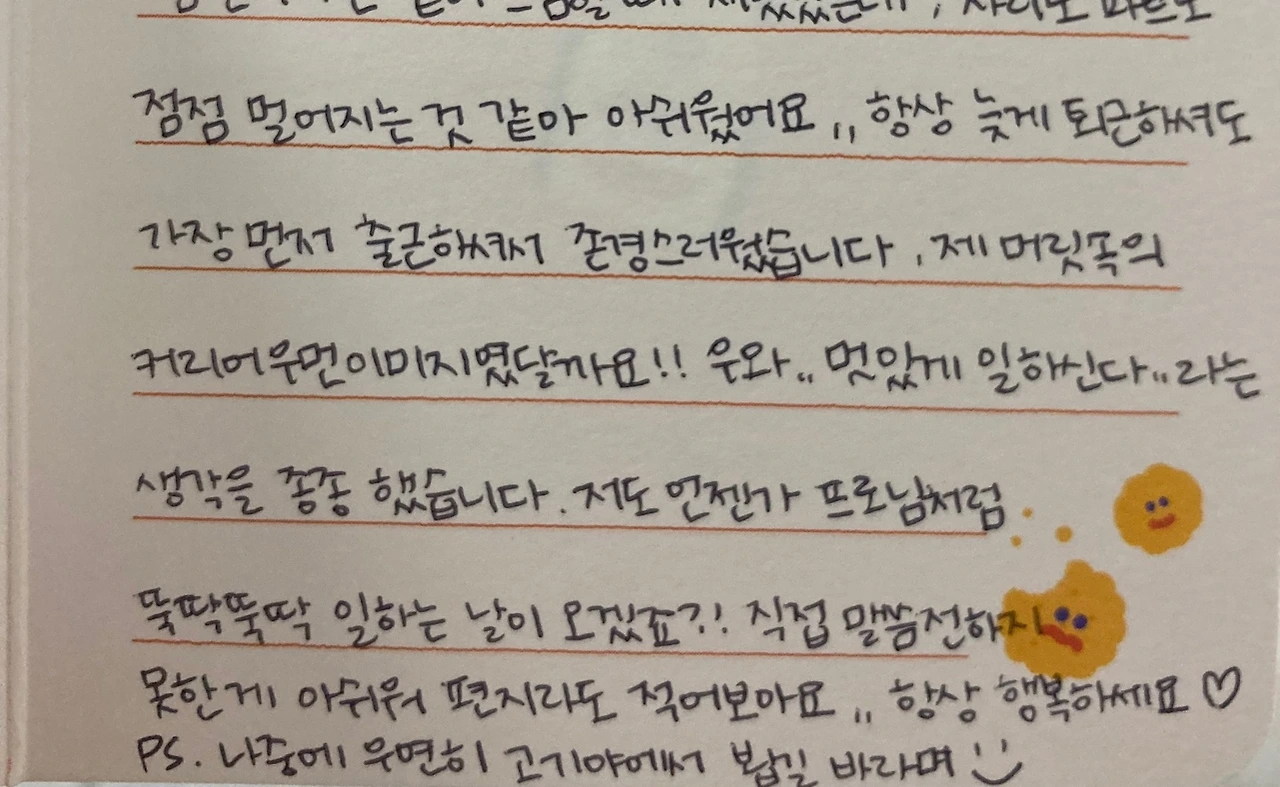 점점 멀어지는 것 같아 아쉬웠어요,, 항상 늦게 퇴근해셔도
가장먼저 출근해셔서 존경스러웠습니다. 제 머릿속의
커리어우먼이미지였달까요!! 우와.. 멋있게 일하신다..라는
생각을 종종 했습니다. 저도 언젠가 프로님처럼
뚝딱뚝딱 일하는 날이 오겠죠?! 직접 말씀전하지
못한게 아쉬워 편지라도 적어보아요,, 항상 행복하세요♡
PS. 나중에 우연히 고기야에서 뵙길 바라며 :)